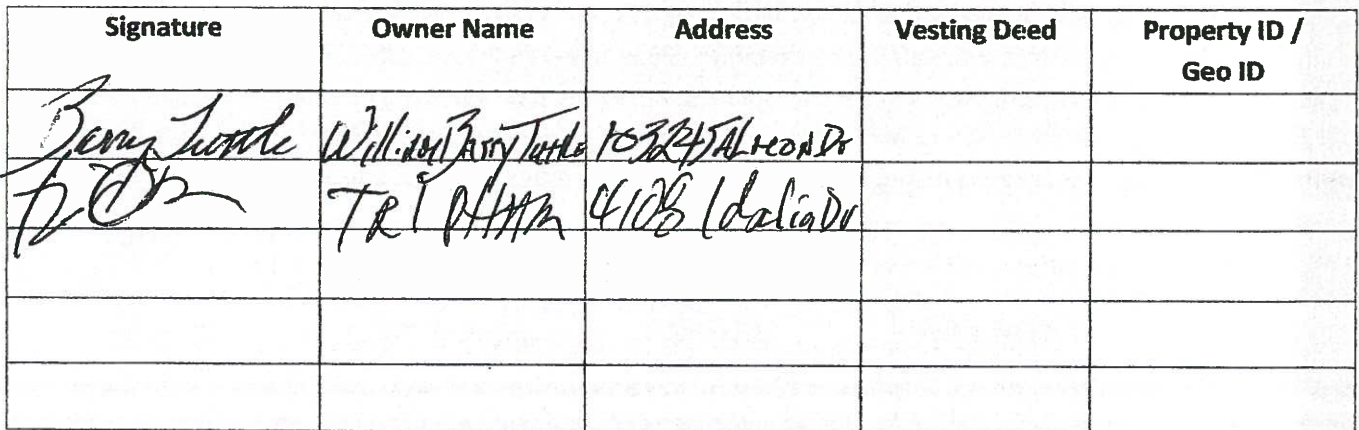 Signature Owner Name Address Vesting Deed Property ID /
Geo ID
Barry Tuttle William Barry Tuttle Dr
TRI PHAM 4108 Idalia Dr